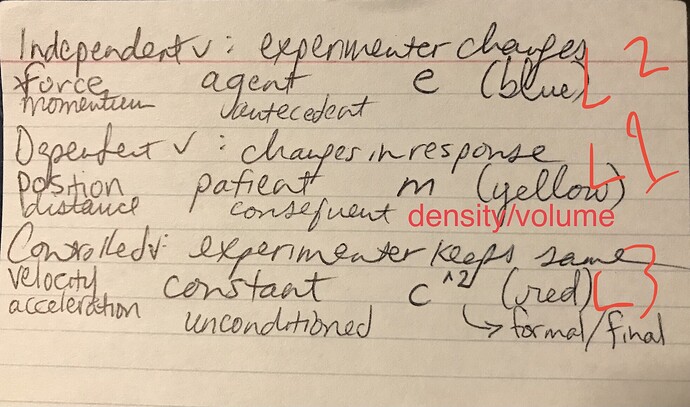 Independent v : experimenter changes L2
force agent e (blue)
momentum antecedent
Dependent v : changes in response L1
position patient m (yellow)
distance consequent density/volume
Controlled v: experimenter keeps same
velocity constant c^2 (red) L3
acceleration unconditioned → formal/final